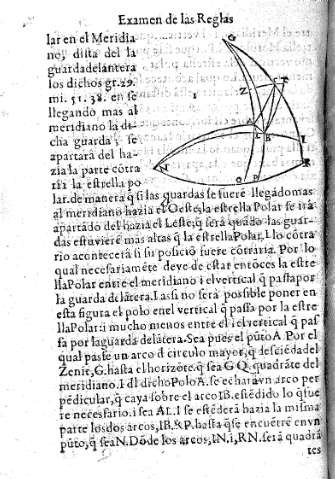 Examen de las Reglas
lar en el Meridia
no, dista del la
guarda delantera
los dichos gr. 29.
mi. 51. 38. en se
llegando mas al
meridiano la di-
cha guarda, se
apartará del ha-
zia la parte cõtra
ria la estrella po
lar. de manera q̃ si las guardas se fuerẽ llegãdo mas
al meridiano hazia el Oeste, la estrella Polar se irá
apartãdo del hazia el Leste, q̃ será quãdo las guar-
das estuvierẽ mas altas q̃ la estrella Polar. I lo cõtra
rio acontecerá si su posiciõ fuere cõtraria. Por lo
qual necesariamẽte deve de estar entõces la estre-
lla Polar entre el meridiano i el vertical q̃ passa por
la guarda delãtera. I assi no será possible poner en
esta figura el polo en el vertical q̃ passa por la estre
lla Polar: i mucho menos entre el i el vertical q̃ pas
sa por la guarda delãtera. Sea pues el pũto A. Por el
qual passe un arco d̃ circulo mayor, q̃ desciẽda del
Zenit, G. hasta el horizõte. q̃ sea G Q. quadrãte del
meridiano. I d̃l dicho Polo A. se echará vn arco per
pẽdicular, q̃ caya sobre el arco I B. estẽdido lo q̃ fue
re necesario. i sea AL. I se estẽderá hazia la misma
parte los dos arcos, I B. & P. hasta q̃ se encuẽtrẽ en vn
pũto, q̃ sea N. Dõde los arcos, I N. i, R N. serã quadrã
tes
G
Z
I
A
L
B
I
N
O
P
R